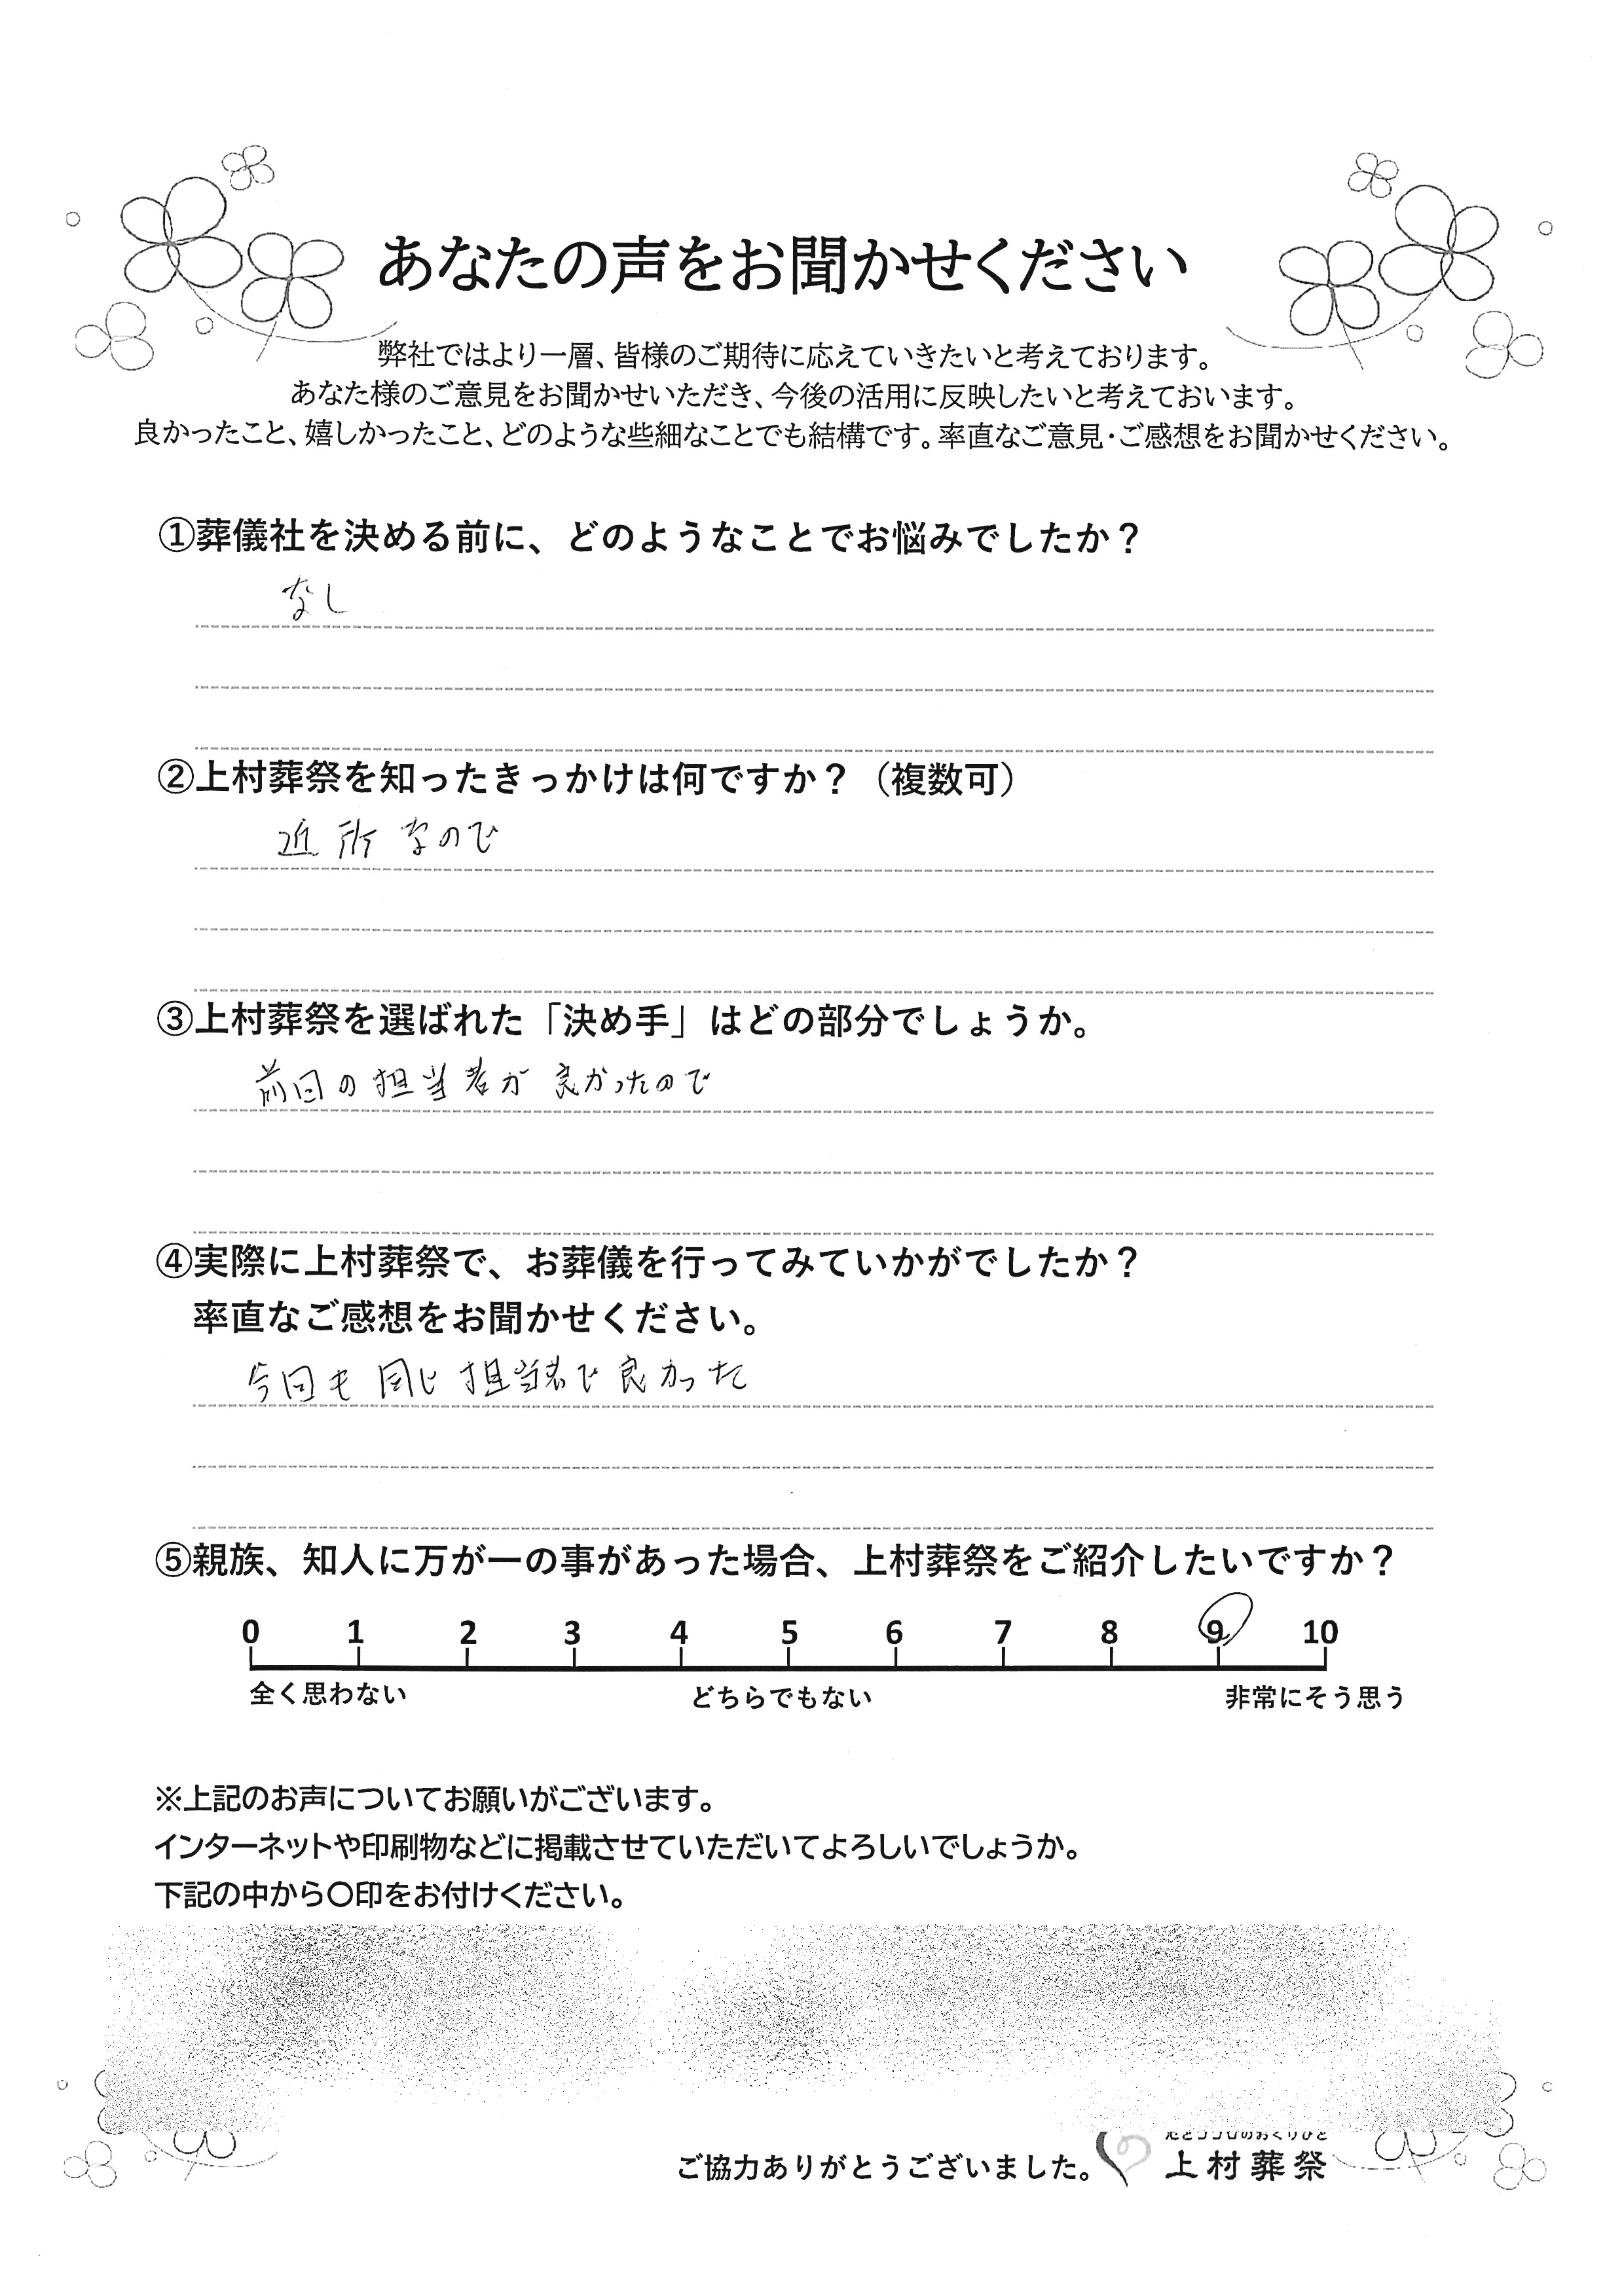 あなたの声をお聞かせください
弊社ではより一層、皆様のご期待に応えていきたいと考えております。
あなた様のご意見をお聞かせいただき、今後の活用に反映したいと考えておいます。
良かったこと、嬉しかったこと、どのような些細なことでも結構です。率直なご意見・ご感想をお聞かせください。
①葬儀社を決める前に、どのようなことでお悩みでしたか？
なし
②上村葬祭を知ったきっかけは何ですか？（複数可）
近所なので
③上村葬祭を選ばれた「決め手」はどの部分でしょうか。
前回の担当者が良かったので
④実際に上村葬祭で、お葬儀を行ってみていかがでしたか？
率直なご感想をお聞かせください。
今回も同じ担当者で良かった
⑤親族、知人に万が一の事があった場合、上村葬祭をご紹介したいですか？
0 1 2 3 4 5 6 7 8 9 10
全く思わない どちらでもない 非常にそう思う
※上記のお声についてお願いがございます。
インターネットや印刷物などに掲載させていただいてよろしいでしょうか。
下記の中から〇印をお付けください。
ご協力ありがとうございました。
上村葬祭